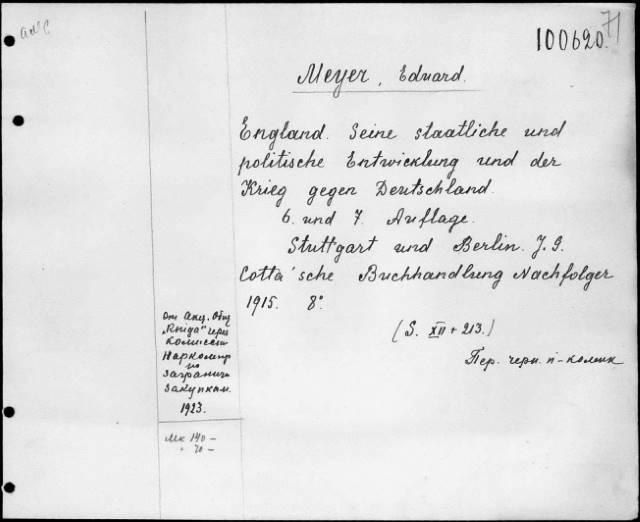 100620. 71
Meyer, Eduard.
England. Seine staatliche und
politische Entwicklung und der
Krieg gegen Deutschland.
6. und 7. Auflage.
Stuttgart und Berlin. J. G.
Cotta'sche Buchhandlung Nachfolger
1915. 8°.
(S. XII + 213.)
Пер. черн. п-коленк
От Акц. Общ
„Kniga" через
Комиссию
Наркомпр
по
Заграничн
Закупкам.
1923.
Мк 140 –
+ 70 –